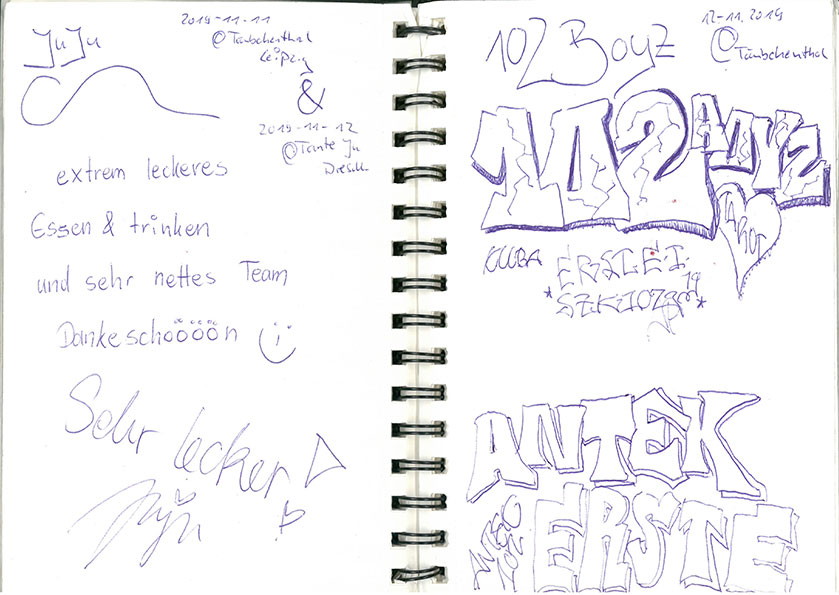 JuJu
2019-11-11
@Täubchenthal
Leipzig
&
2019-11-12
@Tante Ju
extrem leckeres
Essen & trinken
und sehr nettes Team
Dankeschöööön
Sehr lecker
102 Boyz
12-11.2019
@Täubchenthal
102 BOYZ
TAROT
KUBA
ANTEK
ANTEK
102
ERSTE